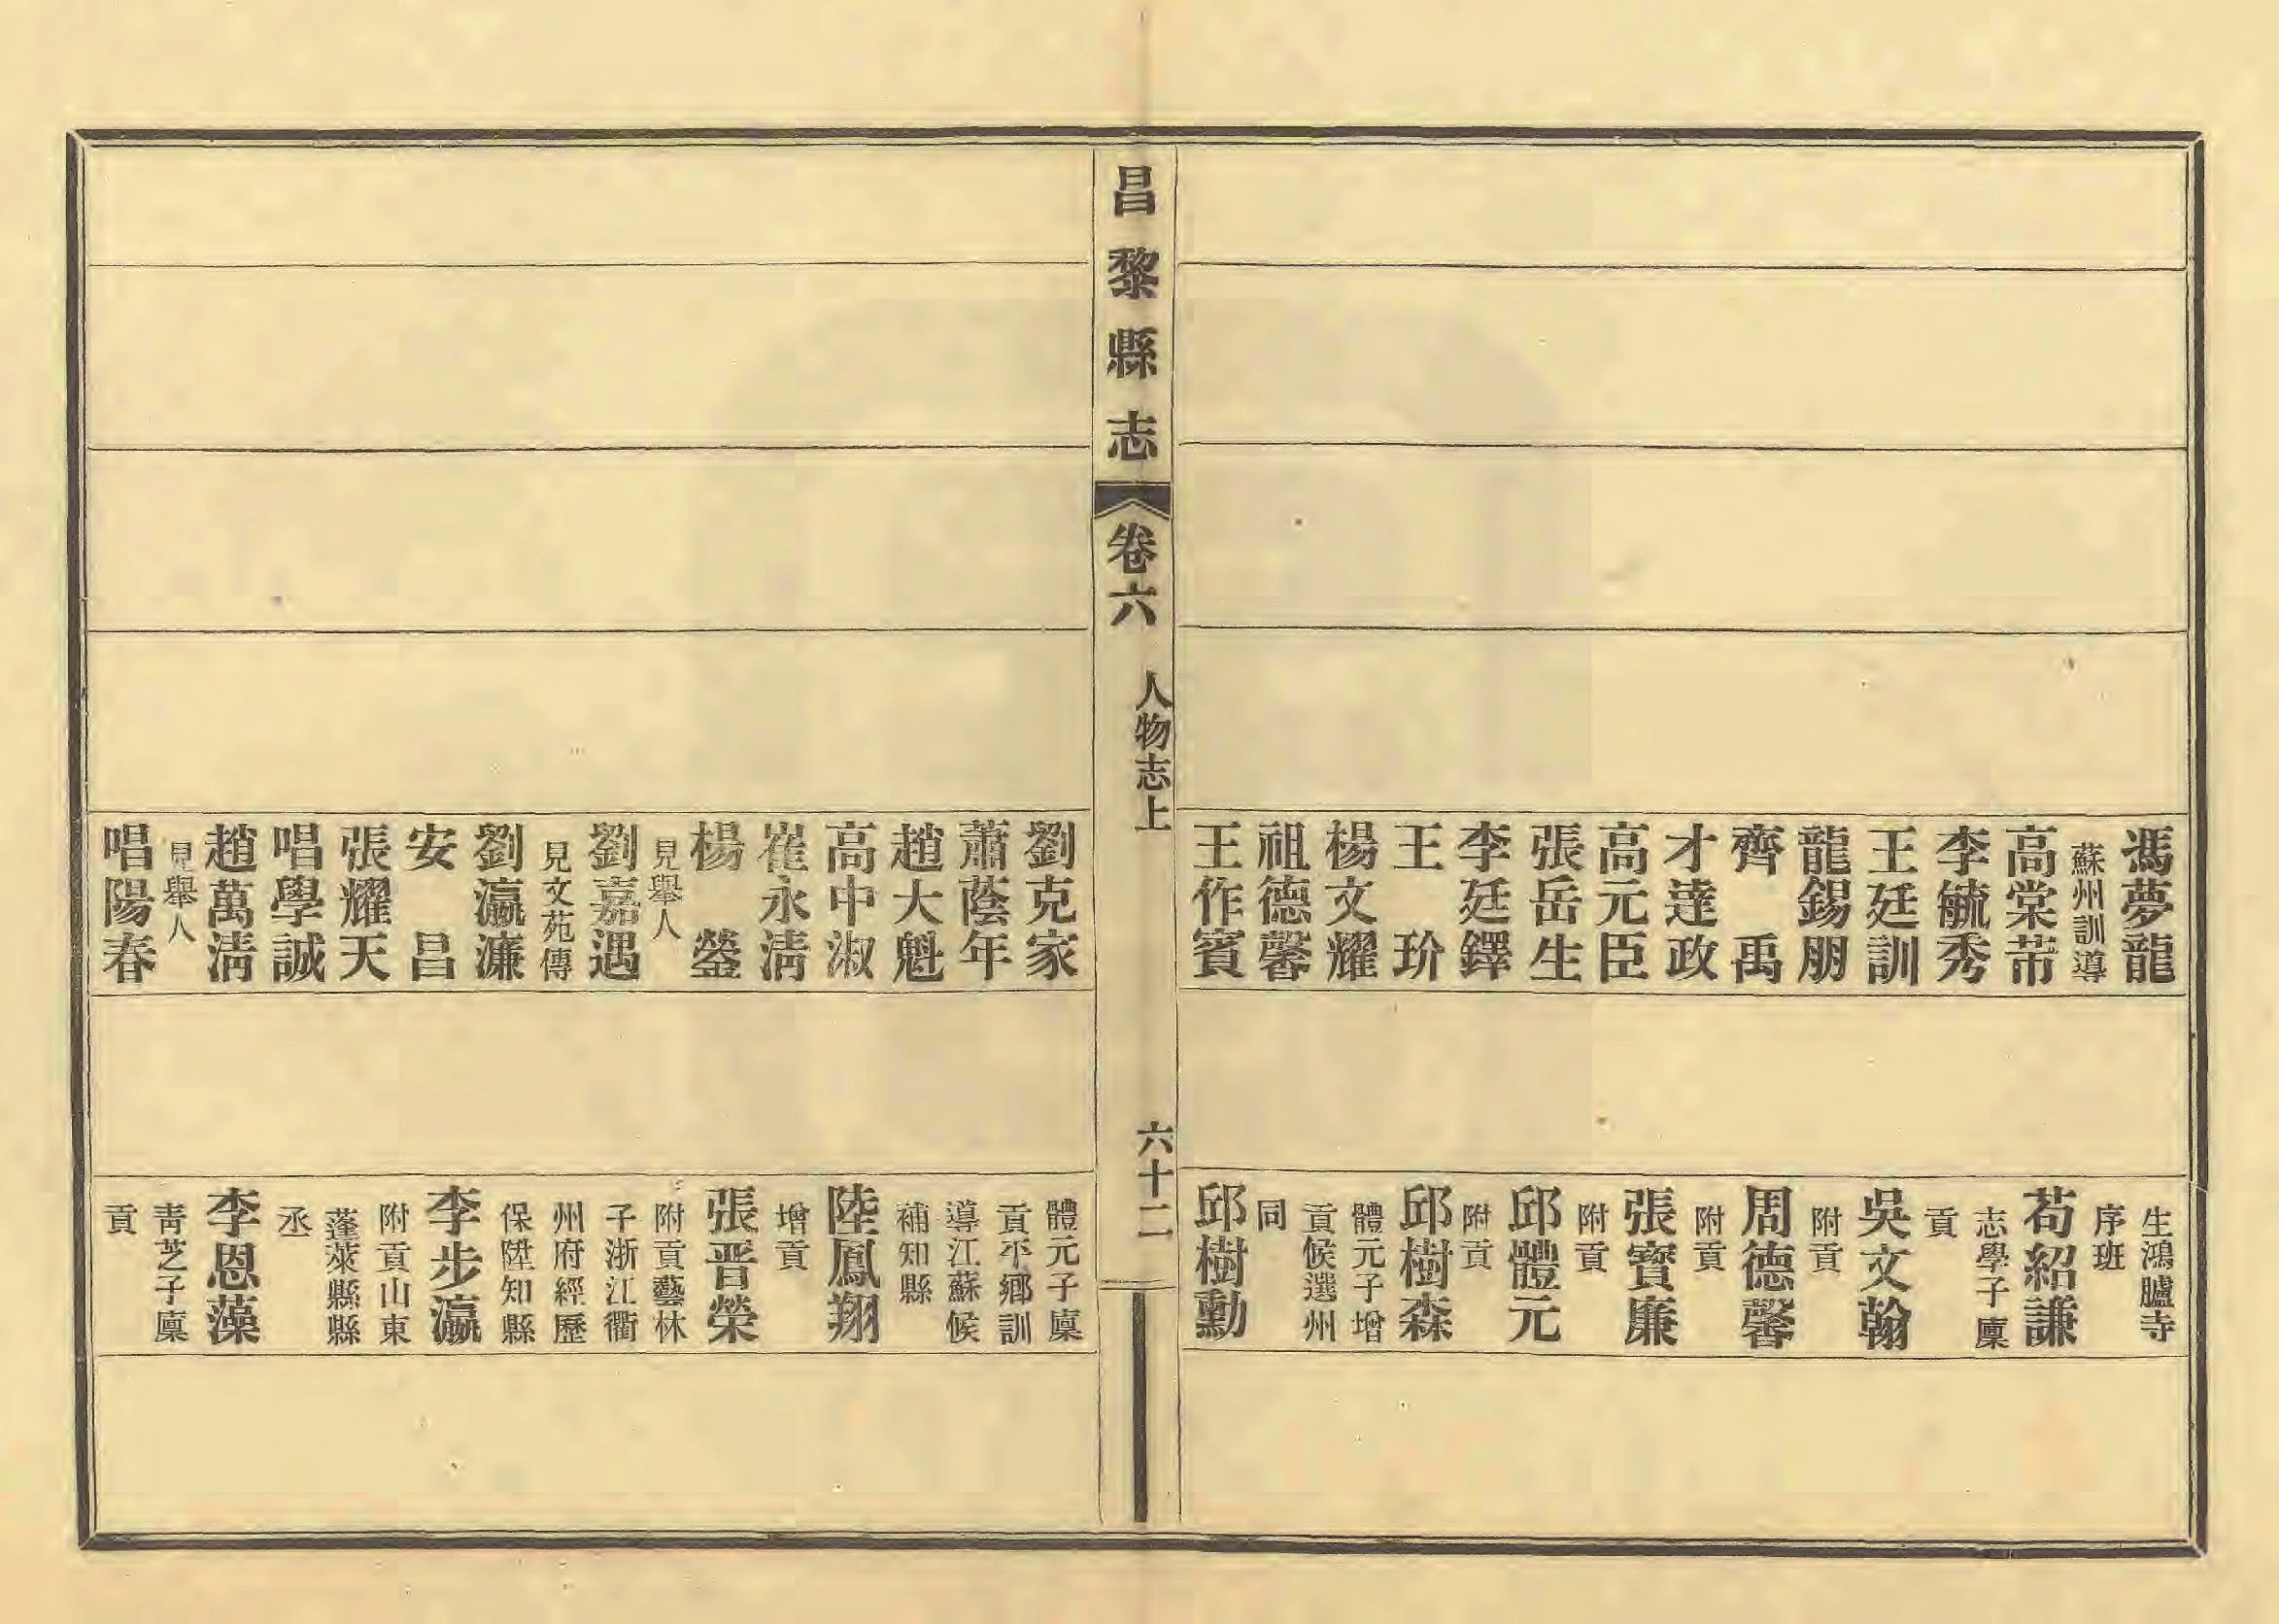 馮夢龍
蘇州訓導
高棠芾
李毓秀
王廷訓
龍錫朋
齊禹
才達政
高元臣
張岳生
李廷鐸
王玠
楊文耀
祖德馨
王作賓
生鴻臚寺
序班
苟紹謙
志學子廩
貢
吳文翰
附貢
周德馨
附貢
張寶廉
附貢
邱體元
附貢
邱樹森
體元子增
貢候選州
同
邱樹勳
昌黎縣志
卷六
人物志上
六十二
劉克家
蕭蔭年
趙大魁
高中淑
崔永淸
楊鎣
見舉人
劉嘉遇
見文苑傳
劉瀛濂
安昌
張耀天
唱學誠
趙萬淸
見舉人
唱陽春
體元子廩
貢平鄉訓
導江蘇候
補知縣
陸鳳翔
增貢
張晋榮
附貢藝林
子浙江衢
州府經歷
保陞知縣
李步瀛
附貢山東
蓬萊縣縣
丞
李恩藻
靑芝子廩
貢